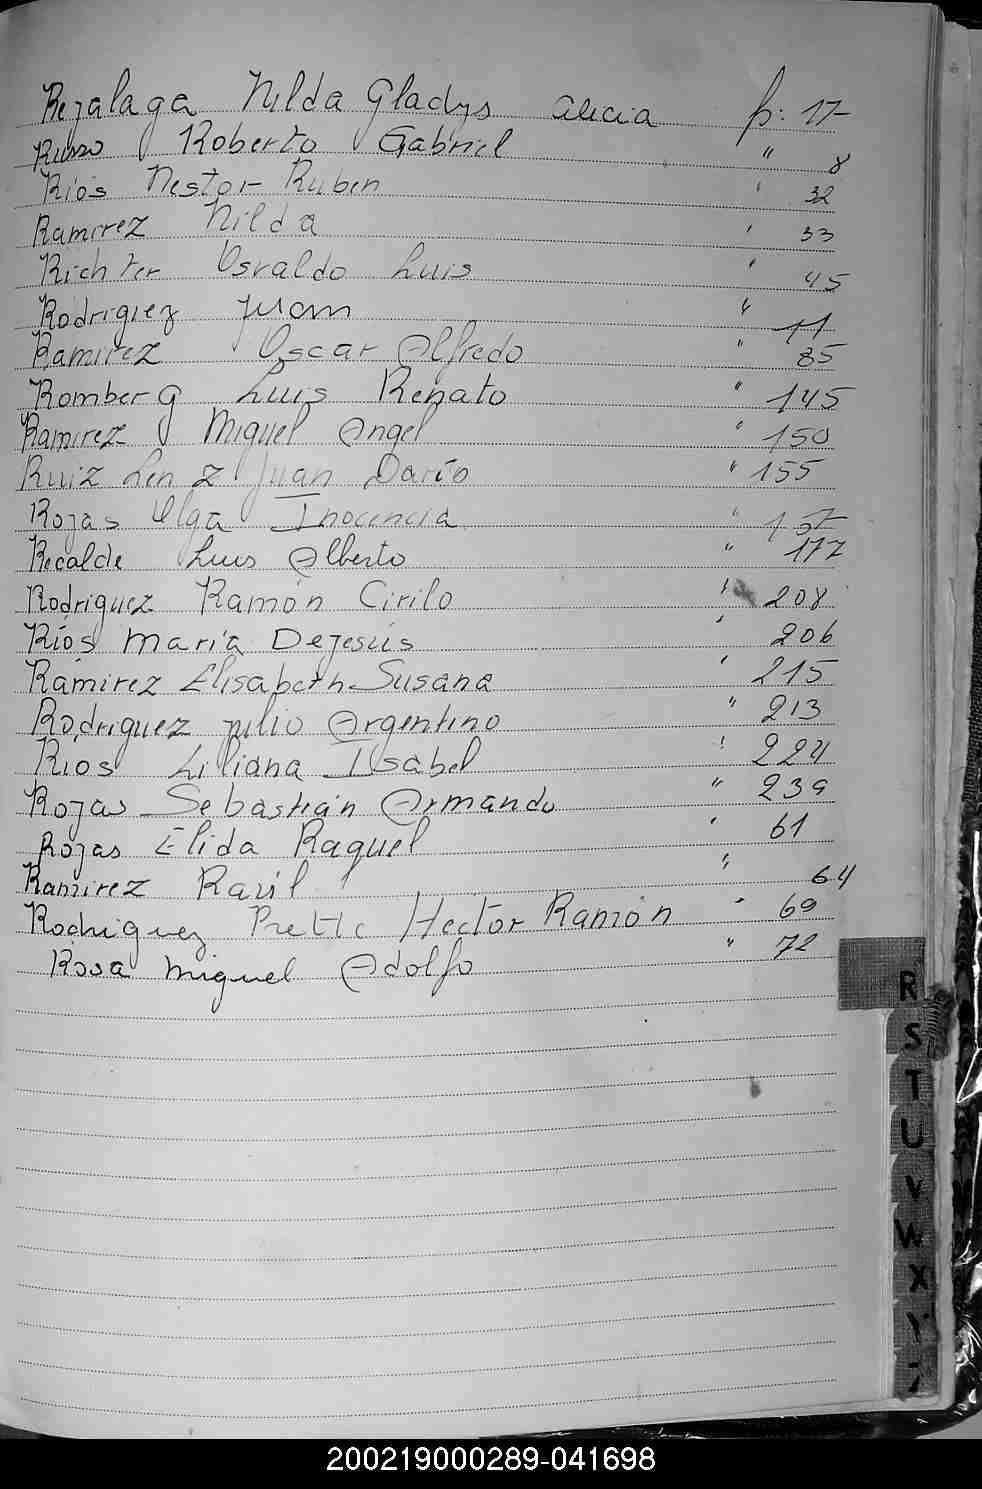 Rejalaga Nilda Gladys Alicia p: 17
Russo Roberto Gabriel " 8
Ríos Nestor Ruben " 32
Ramirez Nilda " 33
Richter Osvaldo Luis " 45
Rodrigiez Juan " 11
Ramirez Oscar Alfredo " 85
Romberg Luis Renato " 145
Ramirez Miguel Angel " 150
Ruiz Lenz Juan Darío " 155
Rojas Olga Inocencia " 157
Recalde Luis Alberto " 177
Rodriguez Ramón Cirilo " 208
Ríos María Dejesús " 206
Ramirez Elisabeth Susana " 215
Rodriguez Julio Argentino " 213
Rios Liliana Isabel " 224
Rojas Sebastián Armando " 239
Rojas Elida Raquel " 61
Ramirez Raúl " 64
Rodriguez Hector Ramón " 69
Rosa Miguel Adolfo " 72
R
S
T
U
V
W
X
Y
200219000289-041698